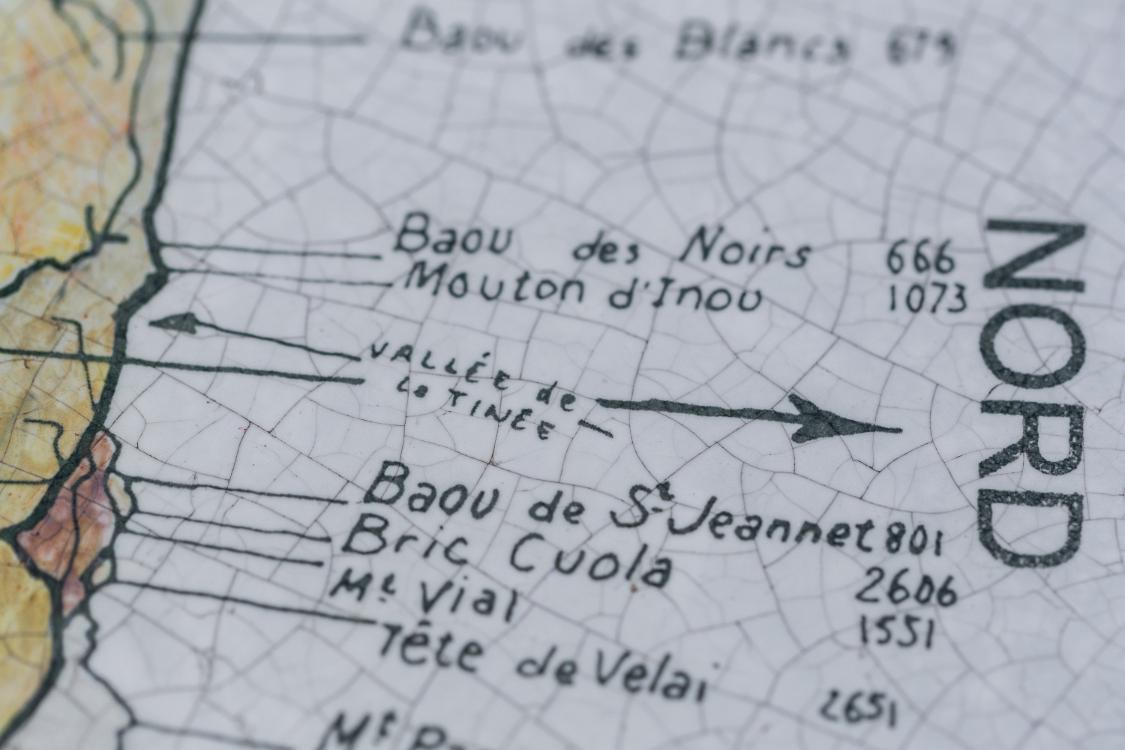 Baou des Blancs 679
Baou des Noirs 666
Mouton d'Inou 1073
VALLÉE de
la TINÉE
NORD
Baou de St Jeannet 801
Bric Cuola 2606
Mt Vial 1551
Tête de Velai 2651
Mt